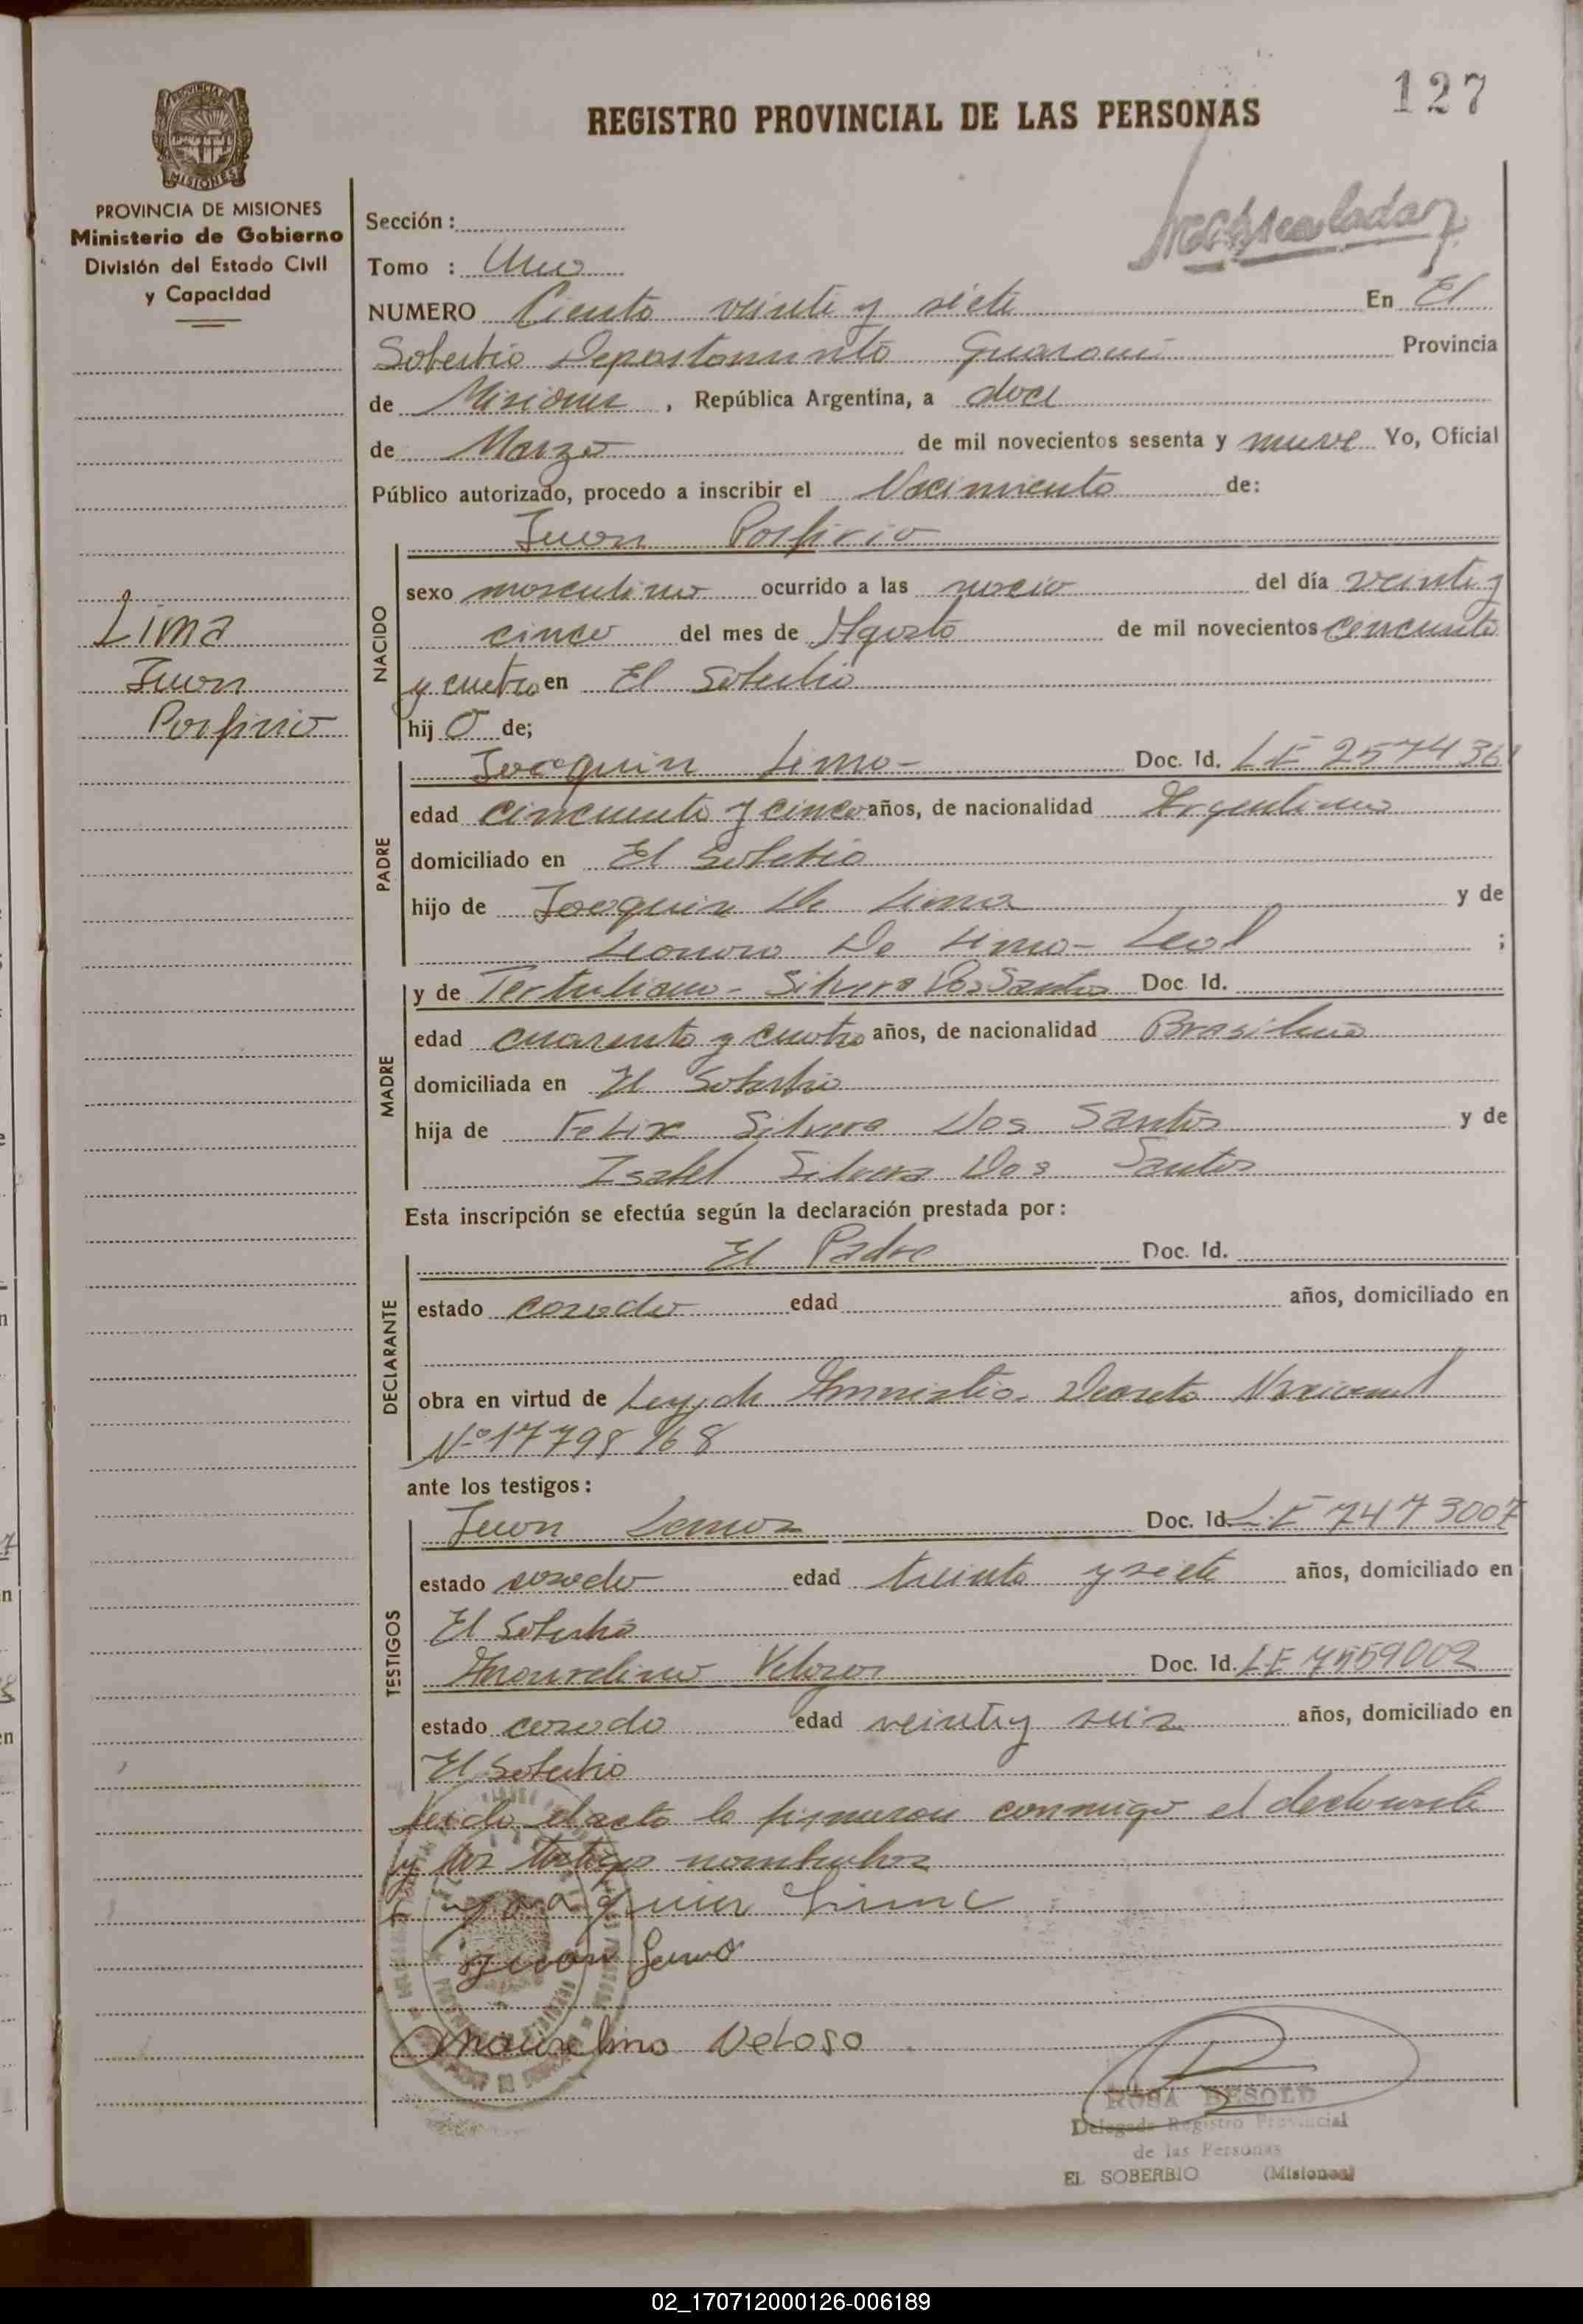 127
REGISTRO PROVINCIAL DE LAS PERSONAS
PROVINCIA DE MISIONES
Ministerio de Gobierno
División del Estado Civil
y Capacidad
MISIONES
Sección :
Tomo : Uno
NUMERO Ciento veinte y siete En El
Soberbio Departamento Guarani Provincia
de Misiones , República Argentina, a doce
de Marzo de mil novecientos sesenta y nueve Yo, Oficial
Público autorizado, procedo a inscribir el Nacimiento de:
Juan Porfirio
NACIDO
sexo masculino ocurrido a las del día veinte y
cinco del mes de Agosto de mil novecientos cincuenta
y cuatro en El Soberbio
hij o de;
Lima
Juan
Porfirio
PADRE
Joaquin Lima- Doc. Id. LE 2574361
edad cincuenta y cinco años, de nacionalidad Argentino
domiciliado en El Soberbio
hijo de Joaquin De Lima y de
Leonora De Lima- Leal ;
MADRE
y de Tertuliana- Silvera Dos Santos Doc. Id.
edad cuarenta y cuatro años, de nacionalidad Brasilera
domiciliada en El Soberbio
hija de Felix Silvera Dos Santos y de
Isabel Silvera Dos Santos
Esta inscripción se efectúa según la declaración prestada por :
DECLARANTE
El Padre Doc. Id.
estado casado edad años, domiciliado en
obra en virtud de Ley de Amnistia- Decreto Nacional
Nº 17798/68
ante los testigos :
TESTIGOS
Juan Lemos Doc. Id. L.E 7473007
estado casado edad treinta y siete años, domiciliado en
El Soberbio
Amourelino Velozo Doc. Id. LE 7559002
estado casado edad veinte y seis años, domiciliado en
El Soberbio
Leido el acto lo firmaron conmigo el declarante
y los testigos nombrados
Joaquin Lima
Juan Lemo
Amourelino Veloso
ROSA BESOLD
Delegada Registro Provincial
de las Personas
EL SOBERBIO (Misiones)
02_170712000126-006189